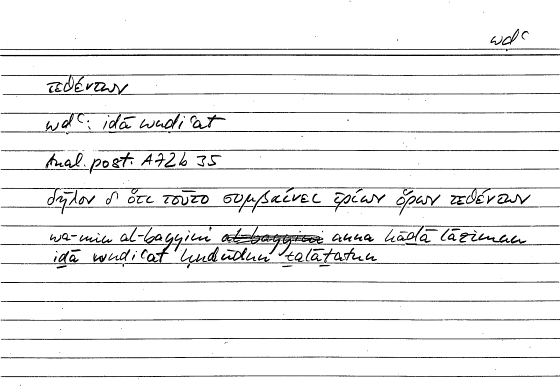 wdʿ
τεθέντων
wdʿ: iḏā wuḍiʿat
Anal. post. A72b 35
δῆλον δ' ὅτι τοῦτο συμβαίνει τριῶν ὅρων τεθέντων
wa-min al-bayyini anna hāḏā lāzimun
iḏā wuḍiʿat ḥudūdun ṯalāṯatun